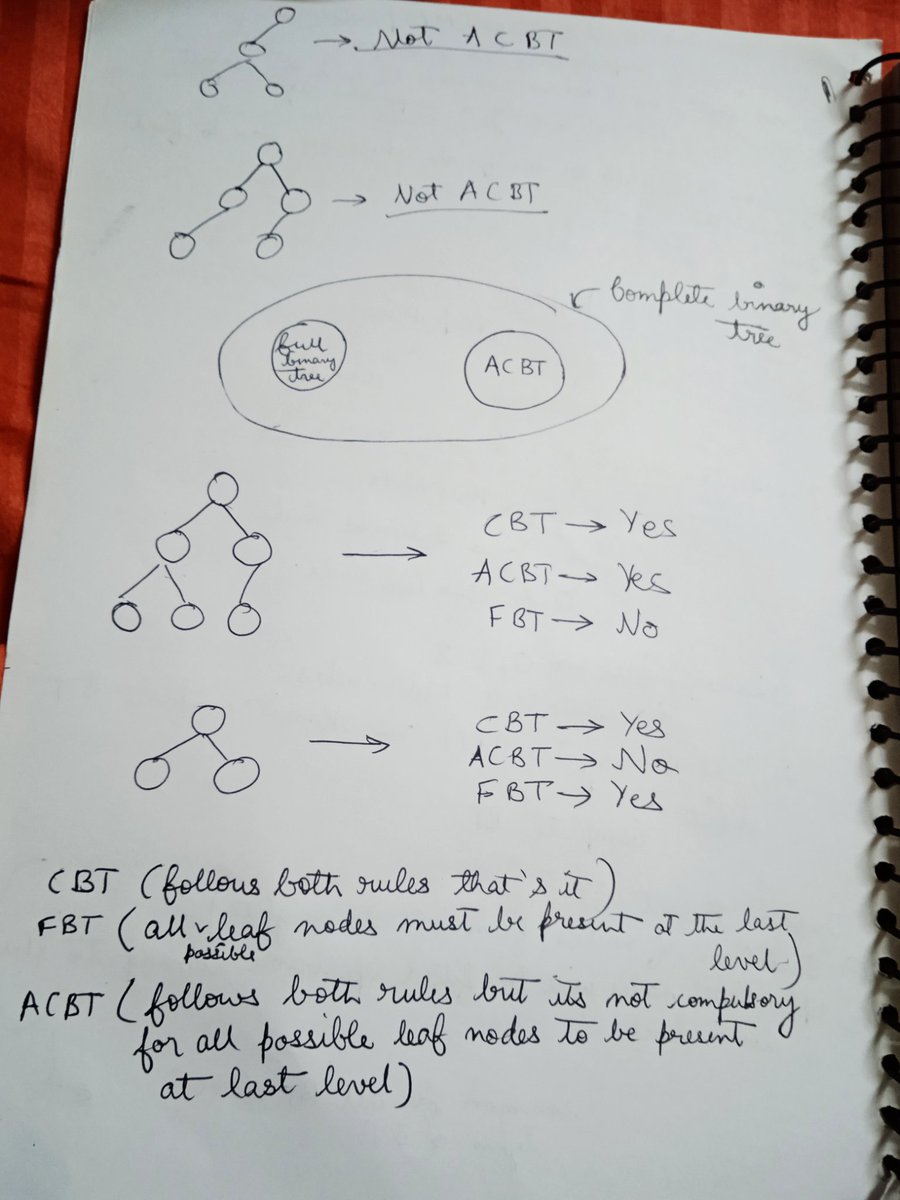 → Not ACBT
→ Not ACBT
Complete binary
tree
full
binary
tree
ACBT
CBT → Yes
ACBT → Yes
FBT → No
CBT → Yes
ACBT → No
FBT → Yes
CBT (follows both rules that's it)
FBT (all possible leaf nodes must be present at the last
level)
ACBT (follows both rules but its not compulsory
for all possible leaf nodes to be present
at last level)